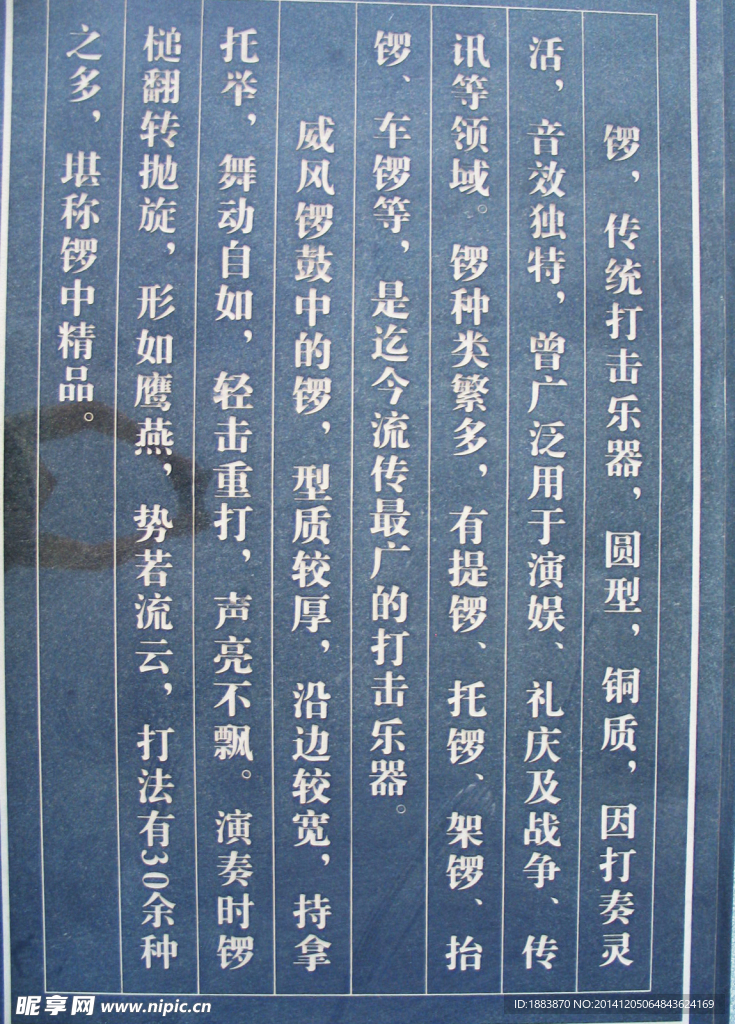 锣，传统打击乐器，圆型，铜质，因打奏灵
活，音效独特，曾广泛用于演娱、礼庆及战争、传
讯等领域。锣种类繁多，有提锣、托锣、架锣、抬
锣、车锣等，是迄今流传最广的打击乐器。
威风锣鼓中的锣，型质较厚，沿边较宽，持拿
托举，舞动自如，轻击重打，声亮不飘。演奏时锣
槌翻转抛旋，形如鹰燕，势若流云，打法有30余种
之多，堪称锣中精品。
昵享网 www.nipic.cn
ID:1883870 NO:20141205064843624169